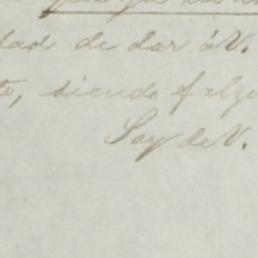 dad de dar á V.
to, siendo falze
Soy de V.